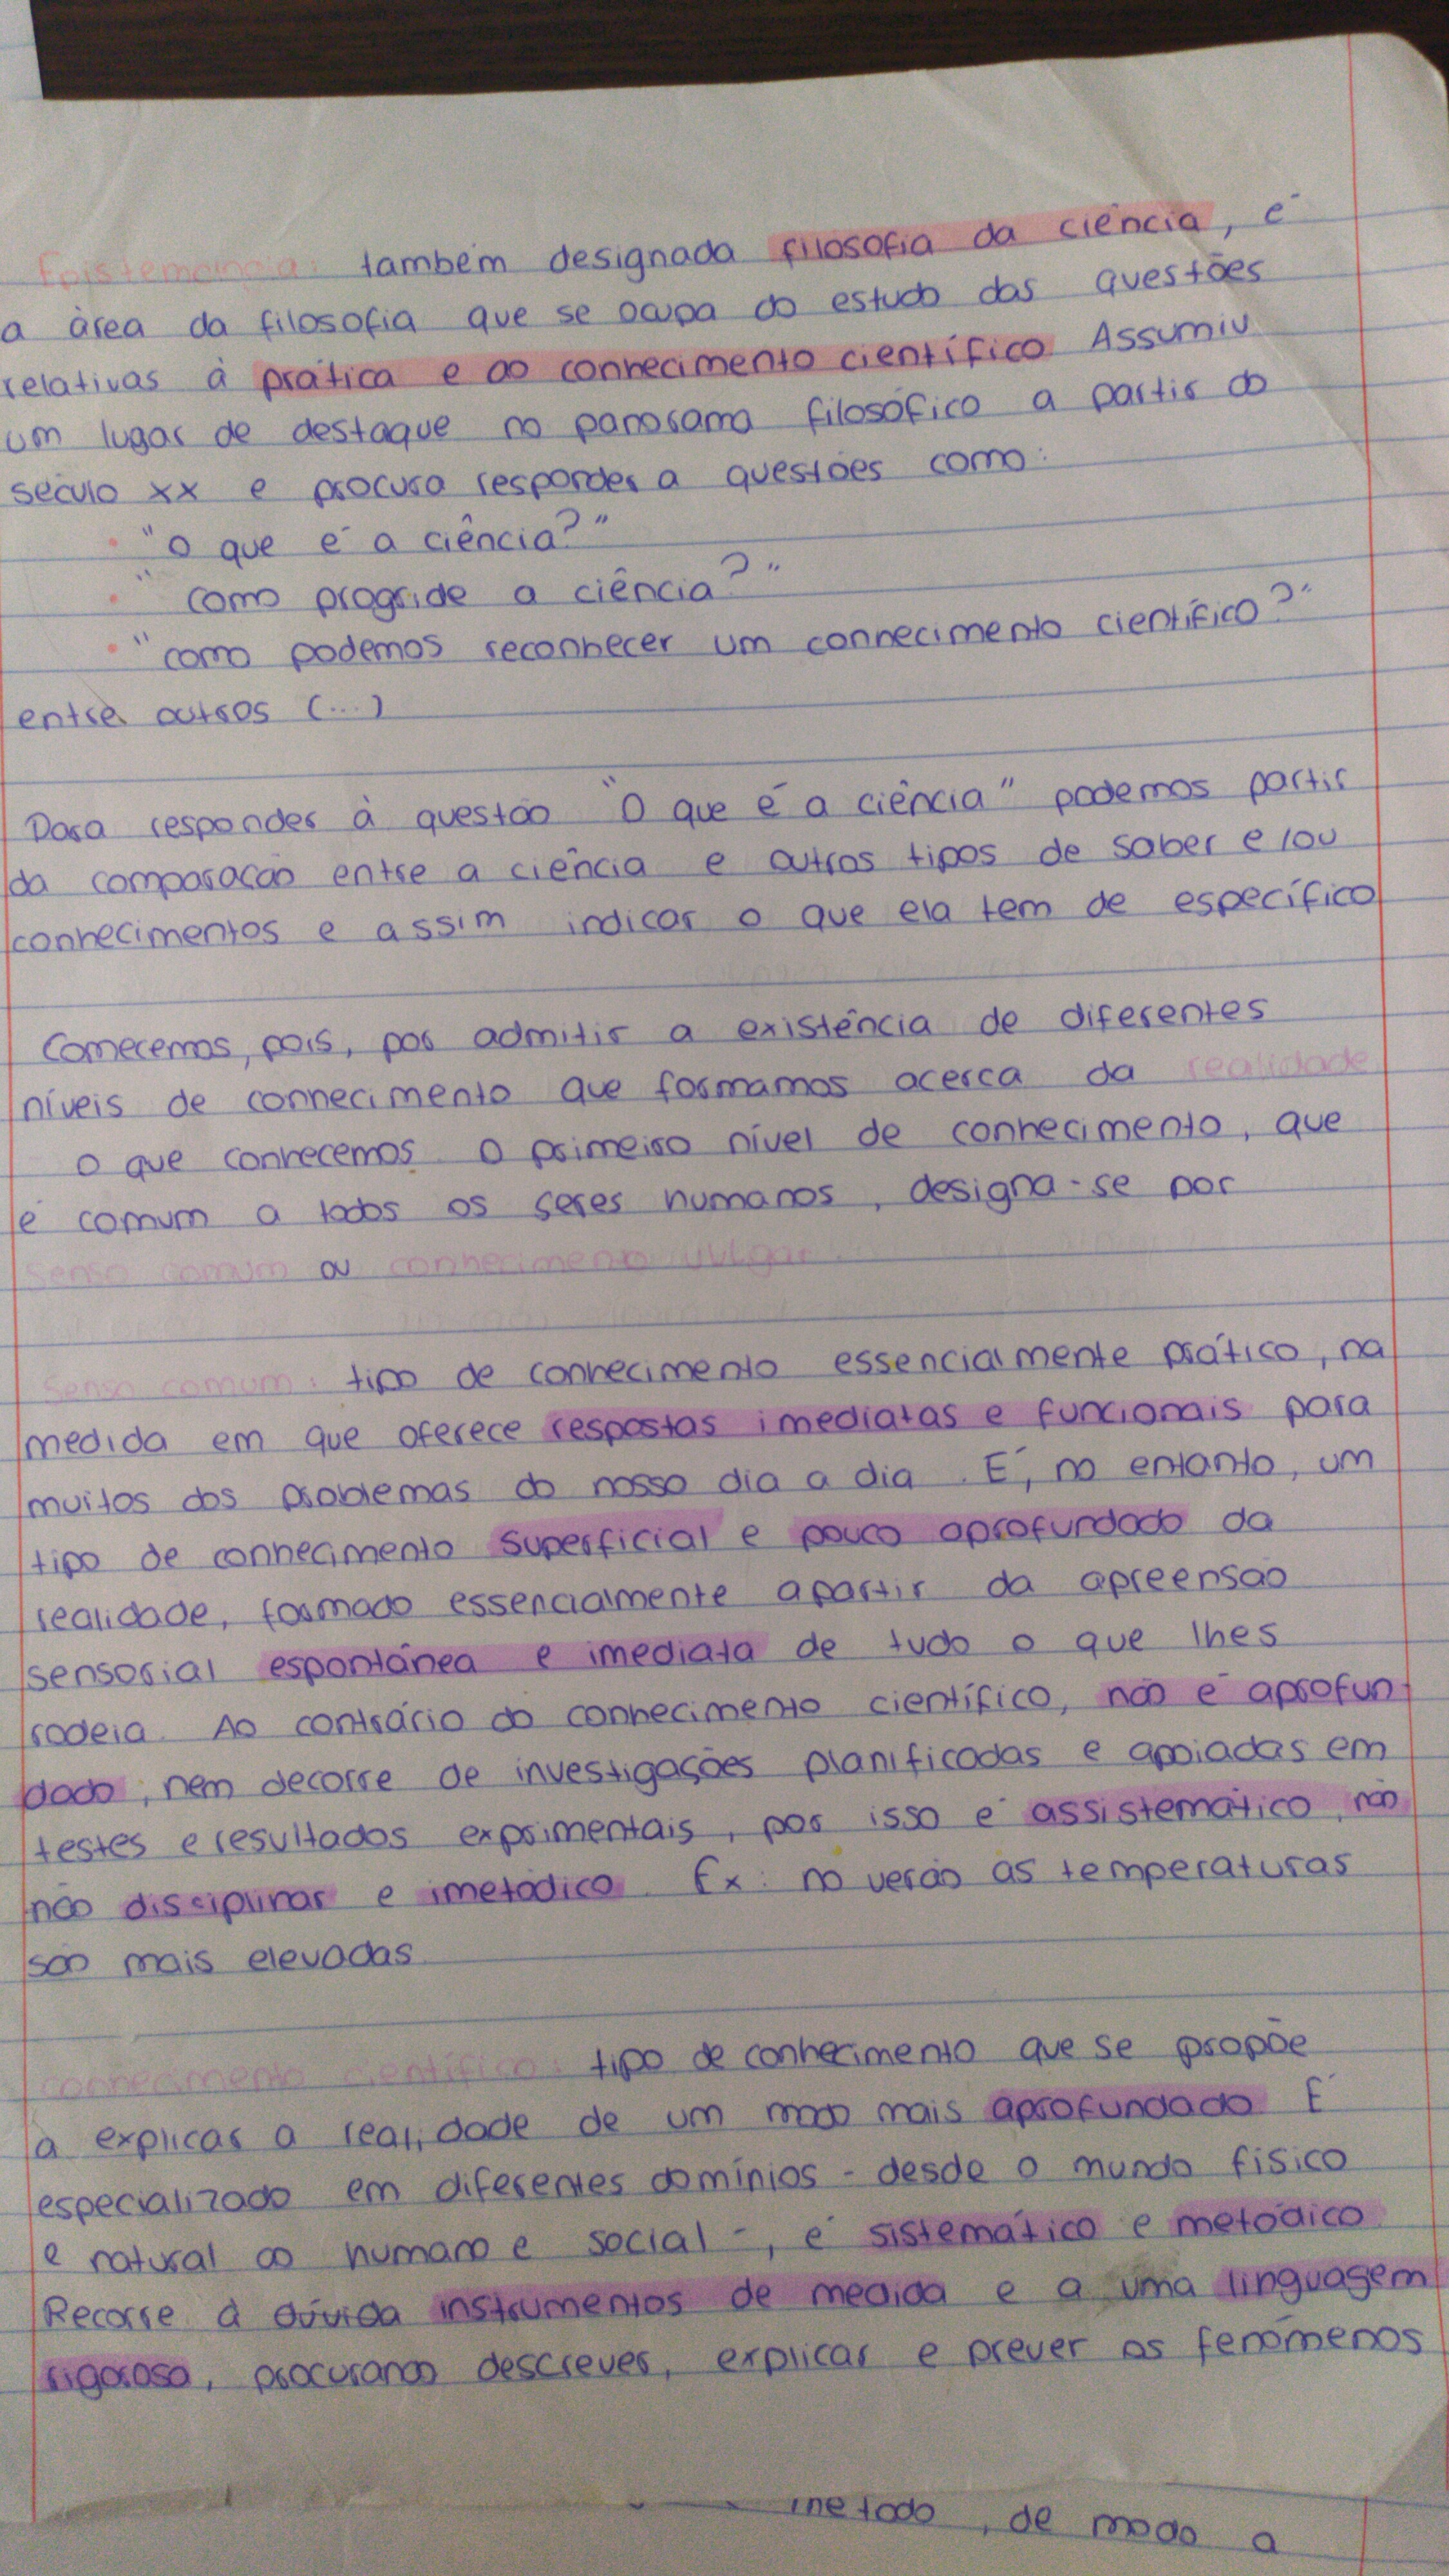 Epistemologia: também designada filosofia da ciência, é
a área da filosofia que se ocupa do estudo das questões
relativas à prática e ao conhecimento científico. Assumiu
um lugar de destaque no panorama filosófico a partir do
século xx e procura responder a questões como:
"O que é a ciência?"
"como progride a ciência?"
"como podemos reconhecer um conhecimento científico?"
entre outros (...)
Para responder à questão "O que é a ciência" podemos partir
da comparação entre a ciência e outros tipos de saber e/ou
conhecimentos e assim indicar o que ela tem de específico
Comecemos, pois, por admitir a existência de diferentes
níveis de conhecimento que formamos acerca da realidade
o que conhecemos. O primeiro nível de conhecimento, que
é comum a todos os seres humanos, designa-se por
senso comum ou conhecimento vulgar.
Senso comum: tipo de conhecimento essencialmente prático, na
medida em que oferece respostas imediatas e funcionais para
muitos dos problemas do nosso dia a dia. É, no entanto, um
tipo de conhecimento superficial e pouco aprofundado da
realidade, formado essencialmente apartir da apreensão
sensorial espontânea e imediata de tudo o que lhes
rodeia. Ao contrário do conhecimento científico, não é aprofun-
dado, nem decorre de investigações planificadas e apoiadas em
testes e resultados exprimentais, por isso é assistemático, não
não disciplinar e imetódico. Ex: no verão as temperaturas
são mais elevadas.
conhecimento científico: tipo de conhecimento que se propõe
a explicar a realidade de um modo mais aprofundado. É
especializado em diferentes domínios - desde o mundo físico
e natural ao humano e social -, é sistemático e metódico.
Recorre à dúvida instrumentos de medida e a uma linguagem
rigorosa, procurando descrever, explicar e prever os fenómenos
método, de modo a